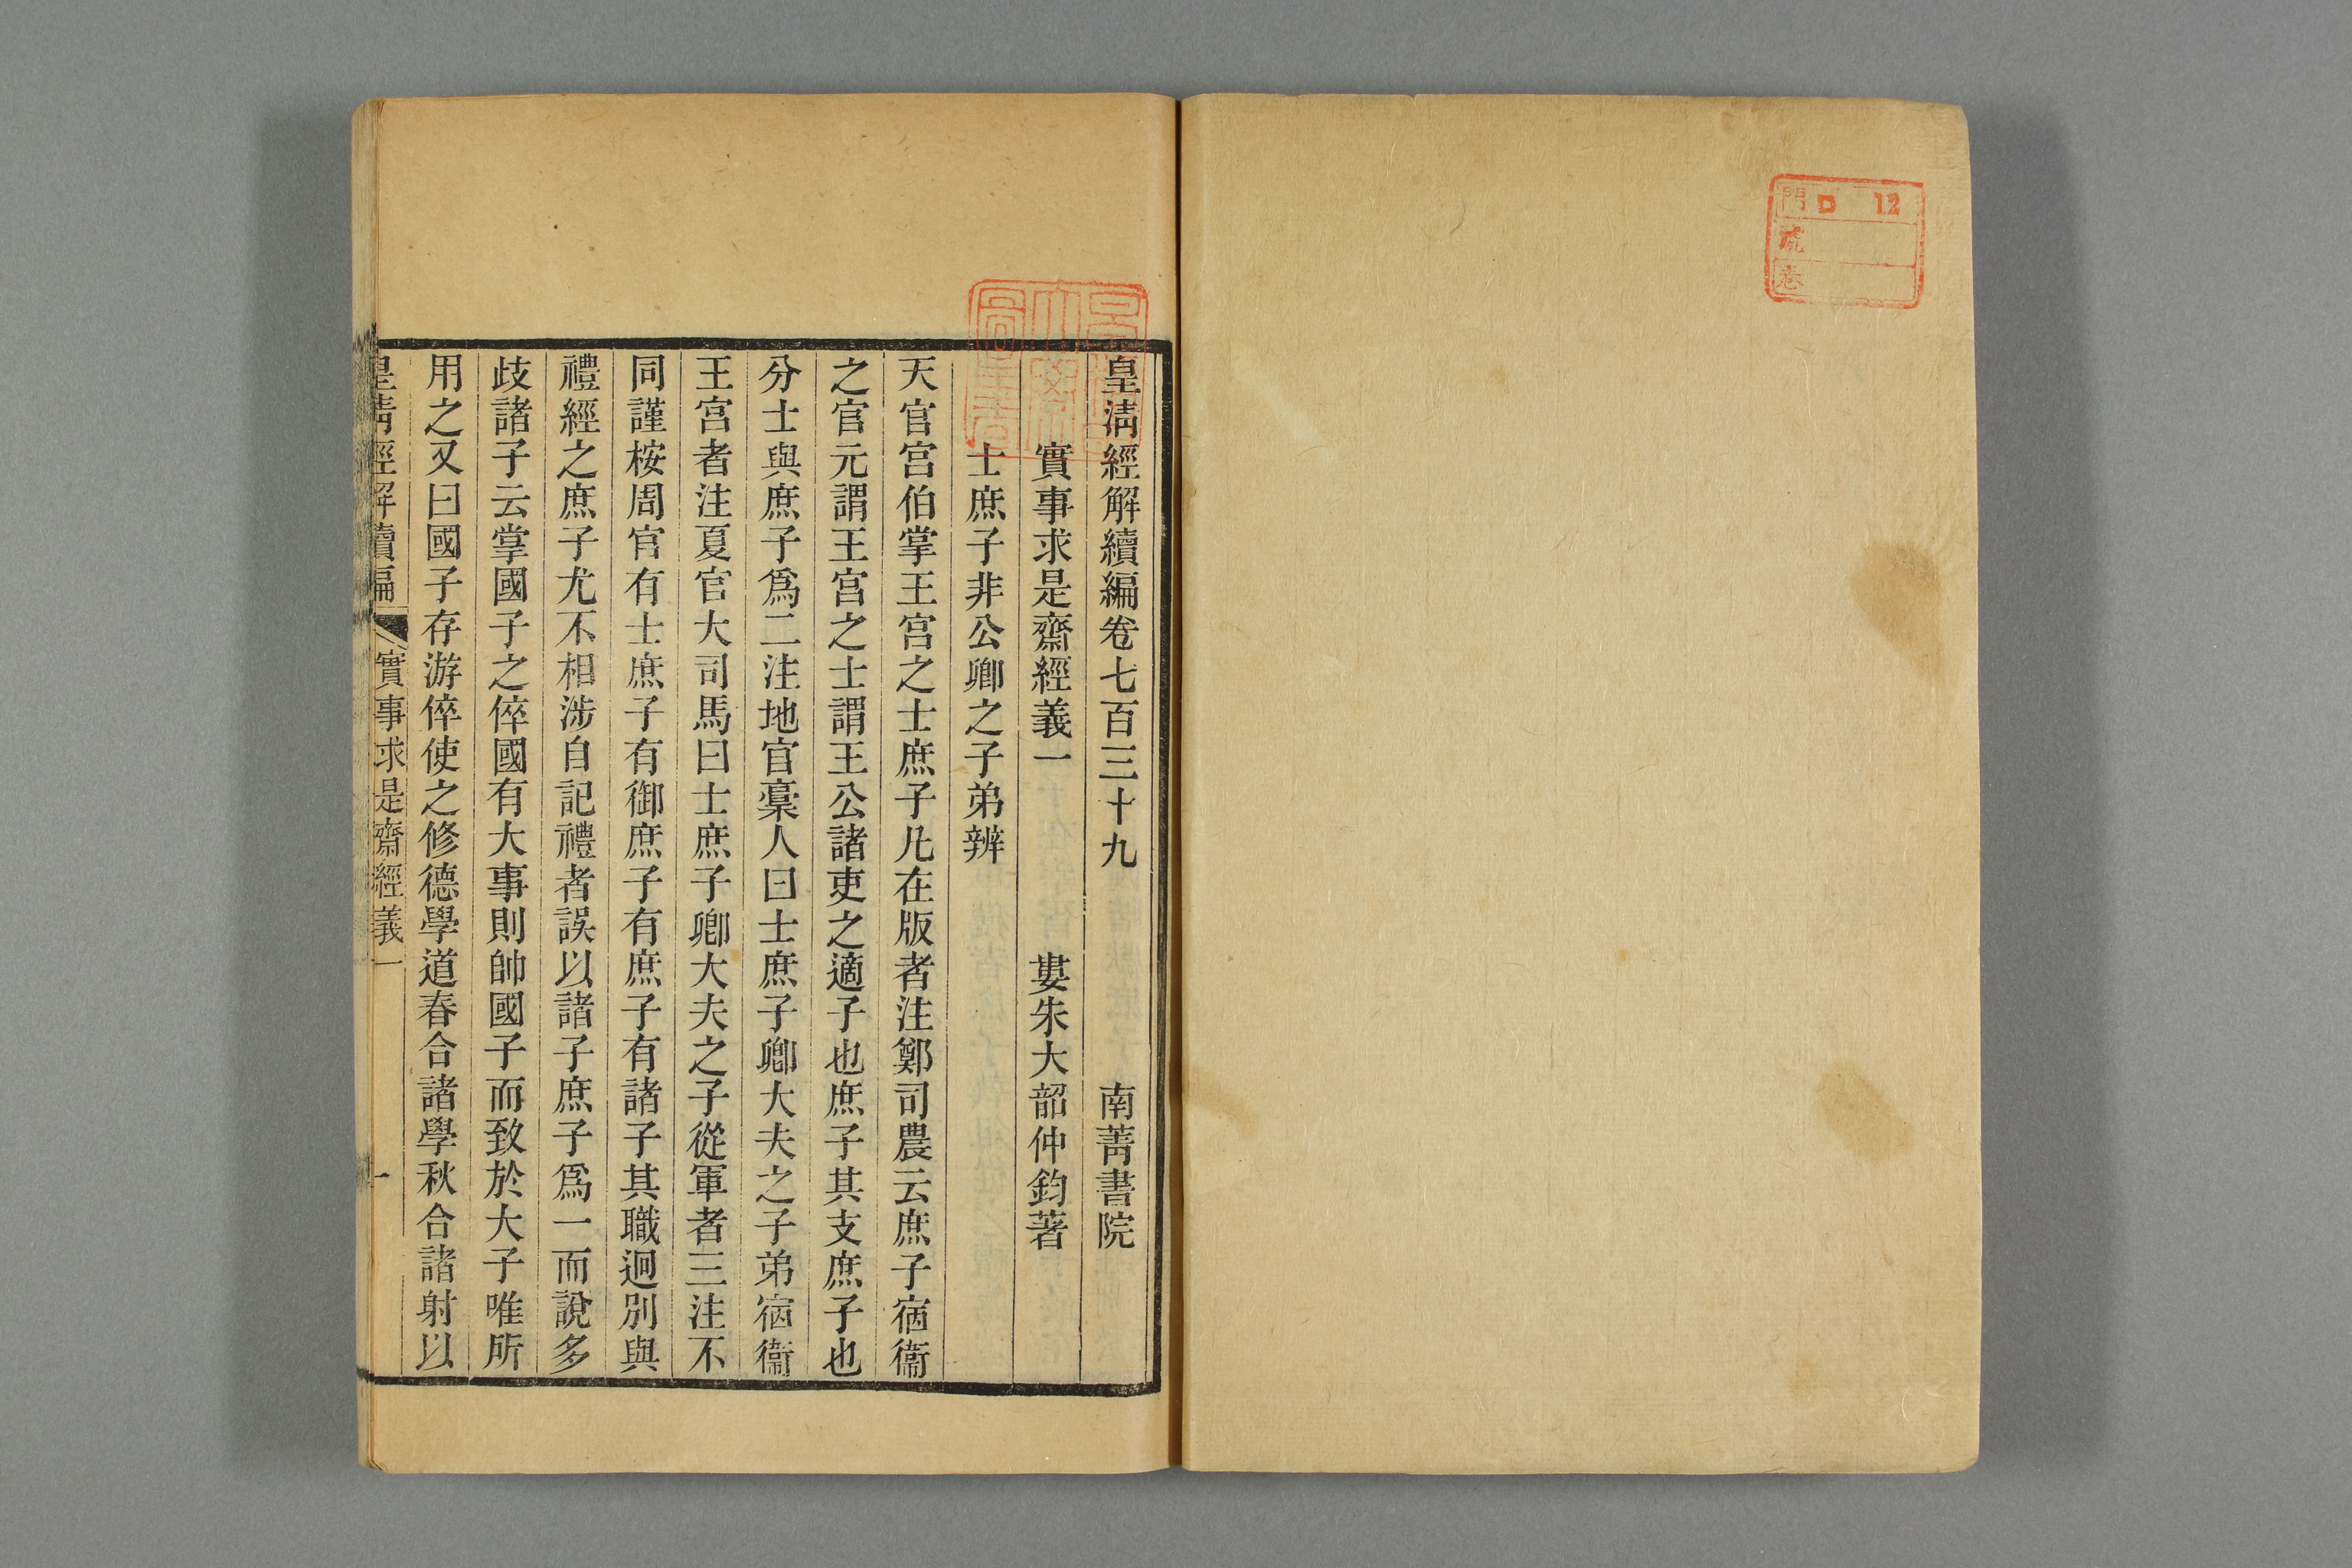 門 D 12
號
卷
皇淸經解續編卷七百三十九 南菁書院
實事求是齋經義一 婁朱大韶仲鈞著
士庶子非公卿之子弟辨
天官宮伯掌王宮之士庶子凡在版者注鄭司農云庶子宿衞
之官元謂王宮之士謂王公諸吏之適子也庶子其支庶子也
分士與庶子爲二注地官槀人曰士庶子卿大夫之子弟宿衞
王宮者注夏官大司馬曰士庶子卿大夫之子從軍者三注不
同謹桉周官有士庶子有御庶子有庶子有諸子其職迥別與
禮經之庶子尤不相涉自記禮者誤以諸子庶子爲一而說多
歧諸子云掌國子之倅國有大事則帥國子而致於大子唯所
用之又曰國子存游倅使之修德學道春合諸學秋合諸射以
皇淸經解續編 實事求是齋經義一 一